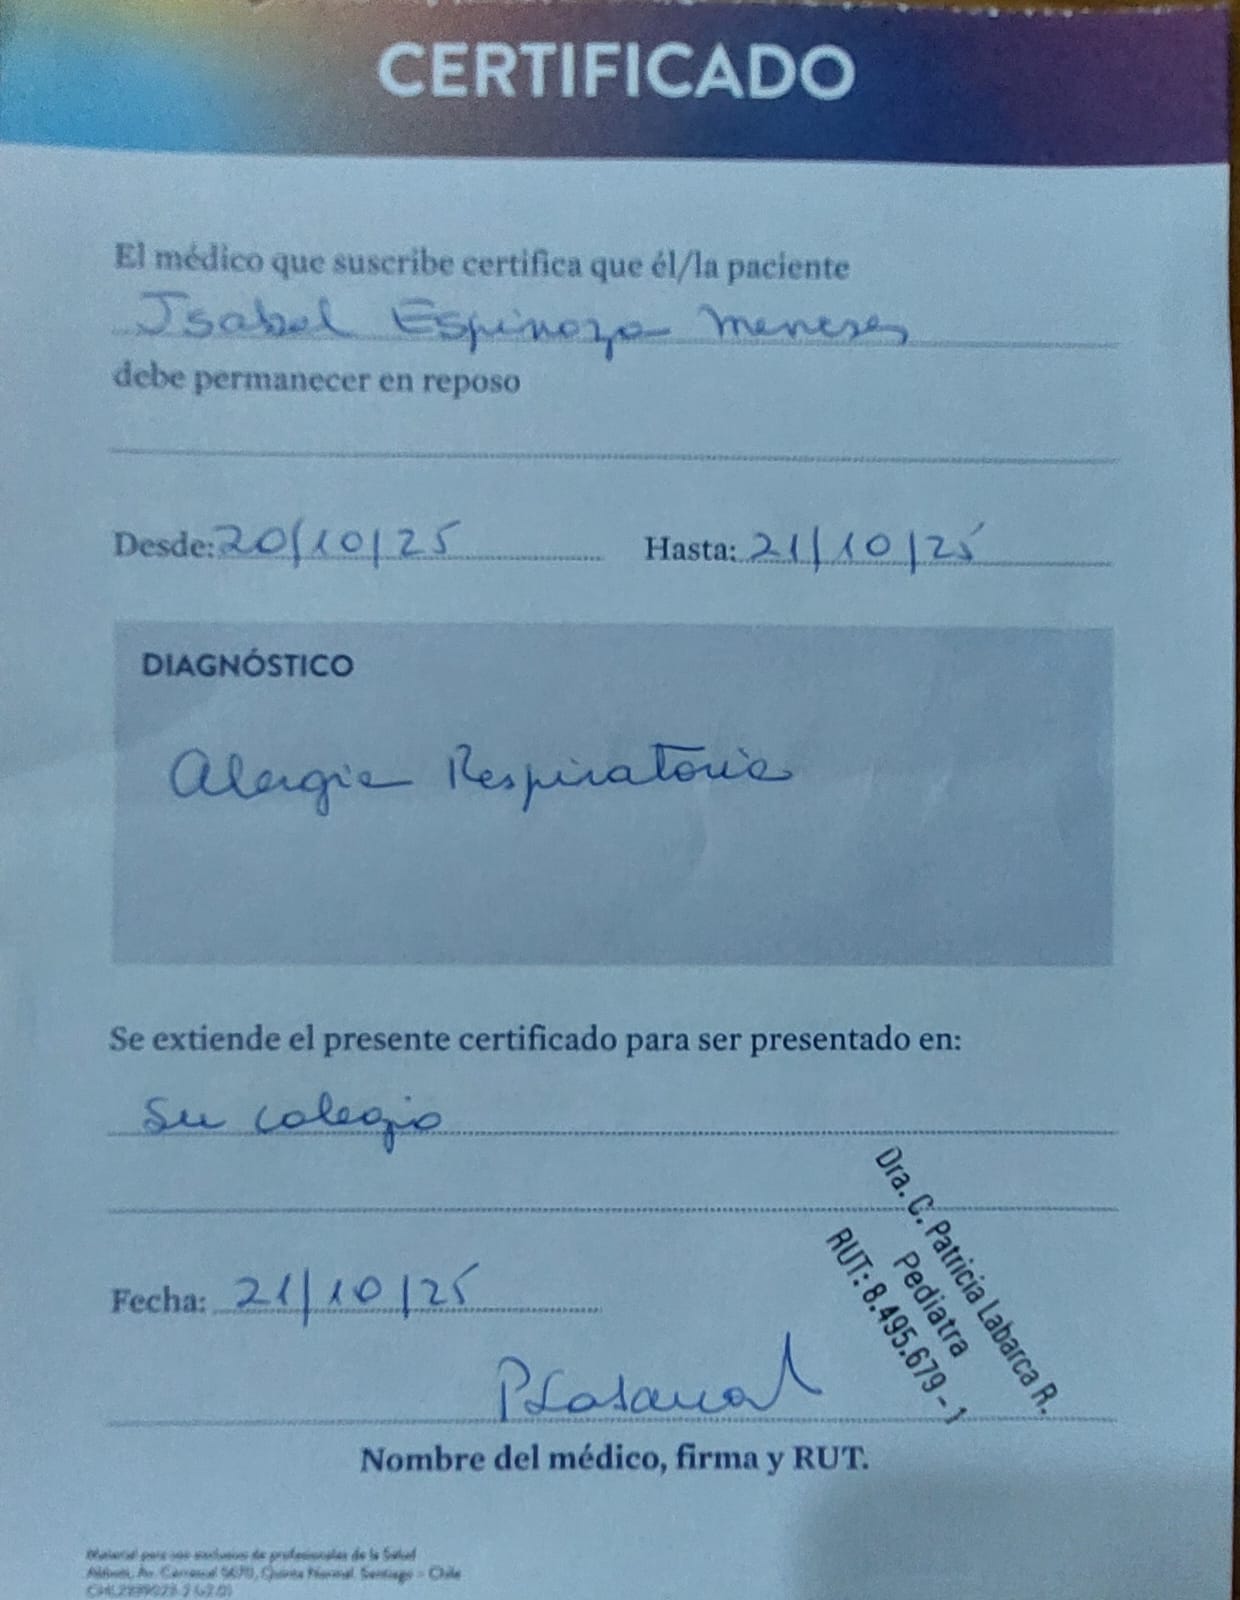 CERTIFICADO
El médico que suscribe certifica que él/la paciente
Isabel Espinoza Meneses
debe permanecer en reposo
Desde: 20/10/25 Hasta: 21/10/25
DIAGNÓSTICO
Alergia Respiratoria
Se extiende el presente certificado para ser presentado en:
Su colegio
Dra. C. Patricia Labarca R.
Pediatra
RUT: 8.495.679 - 1
Fecha: 21/10/25
Nombre del médico, firma y RUT.
Material para uso exclusivo de profesionales de la Salud
Av. Carrascal 5670, Quinta Normal. Santiago - Chile